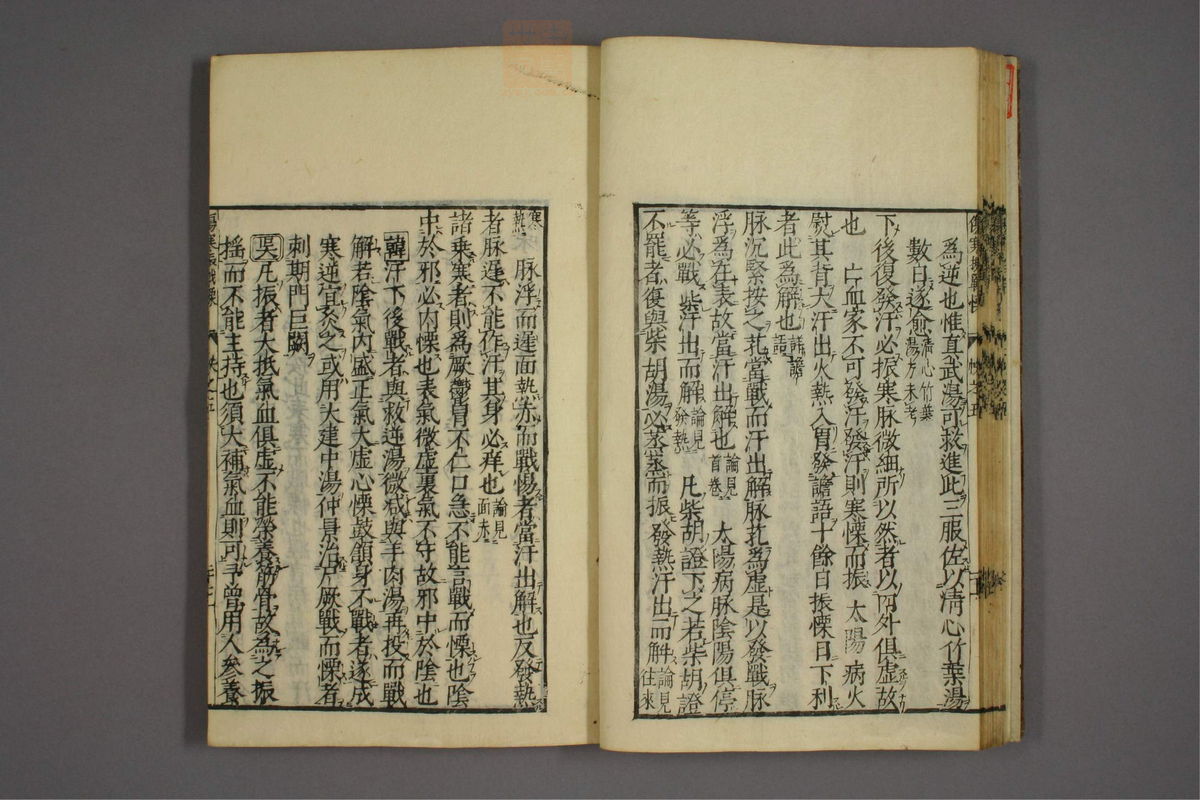 為逆也惟直武湯可救進此三服佐以清心竹葉湯
數日遂愈清心竹葉湯方未考
下後復發汗必振寒脉微細所以然者以内外俱虛故
也 亡血家不可發汗發汗則寒慄而振 太陽病火
熨其背大汗出火熱入胃發譫語十餘日振慄自下利
者此為解也譫語
脉沉緊按之芤當戰而汗出解脉芤為虛是以發戰脉
浮為在表故當汗出解也論見首卷 太陽病脉陰陽俱停
等必戰慄汗出而解論見發熱 凡柴胡證下之若柴胡證
不罷者復與柴胡湯必蒸蒸而振發熱汗出而解論見往來
寒熱 脉浮而遲面熱赤而戰惕者當汗出解也反發熱
者脉遲不能作汗其身必痒也論見面赤
諸乗寒者則為厥鬱冒不仁口急不能言戰而慄也陰
中於邪必内慄也表氣微虛裏氣不守故邪中於陰也
韓汗下後戰者與救逆湯微减與羊肉湯再投而戰
解若陰氣内盛正氣大虛心慄鼓頷身不戰者遂成
寒逆宜灸之或用大建中湯仲景治尸厥戰而慄者
刺期門巨闕
吴凡振者大抵氣血俱虛不能榮養筋骨故為之振
揺而不能主持也須大補氣血則可予曽用人參養
傷寒 戰慄